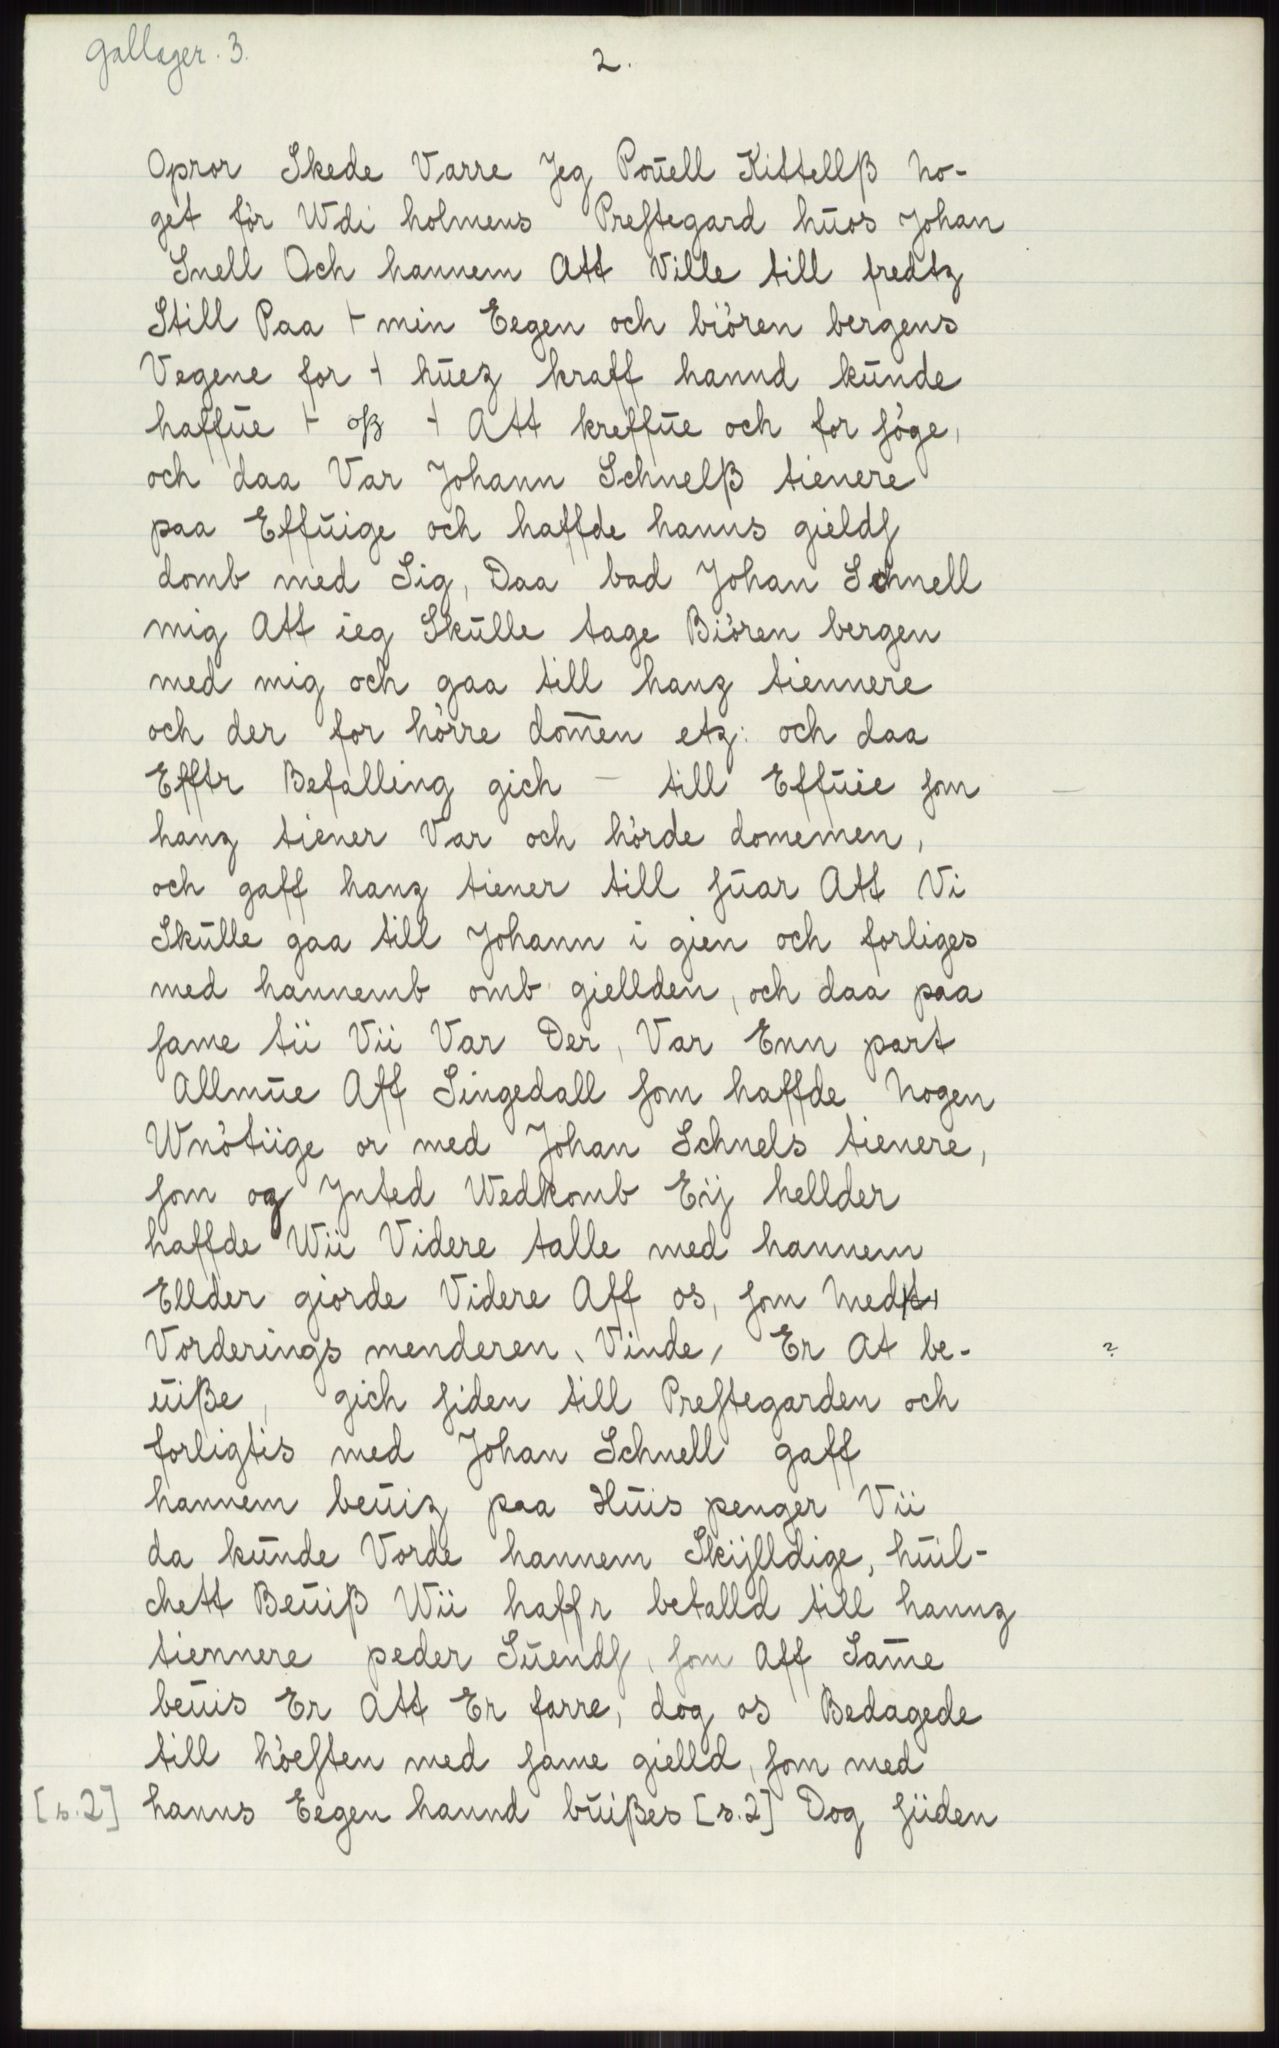 Gallager. 3.
2.
Opror Skede Varre Jeg Poūell Kittellß no-
get för Wdi holmens Prestegard hūos Johan
Snell Och hannem Att Ville till fredtz
Still Paa ⊢ min Eegen och biören bergens
Vegene for ⊣ hūez kraff hannd kūnde
haffūe ⊢ oß ⊣ Att kreffūe och for söge,
och daa Var Johann Schnelß tienere
paa Effūige och haffde hanns gields
domb med Sig, Daa bad Johan Schnell
mig Att ieg Skūlle tage Biören bergen
med mig och gaa till hanz tiennere
och der for hörre dom̄en etz: och daa
Efftr Befalling gich – till Effūie som –
hanz tiener Var och hörde domemen,
och gaff hanz tiener till sūar Att Vi
Skūlle gaa till Johann i gien och forliges
med hannemb omb giellden, och daa paa
same tii Vii Var Der, Var Enn part
Allmūe Aff Singedall som haffde Nogen
Wnötiige or med Johan Schnels tienere,
som og Jnted Wedkomb Eij hellder
haffde Wii Videre talle med hannem
Ellder giorde Videre Aff os, som Med
Vorderings menderen, Vinde, Er At be- ?
ūiße, gich siden till Prestegarden och
forligtis med Johan Schnell gaff
hannem beūiz paa Hūis penger Vii
da kūnde Vorde hannem Skijlldige, hūil-
chett Beūiß Wii haffr betalld till hannz
tiennere peder Sūends, som Aff Sam̄e
beūis Er Att Er farre, dog os Bedagede
till höesten med same gielld, som med
[s. 2] hanns Eegen hannd būißes [s. 2] Dog siiden